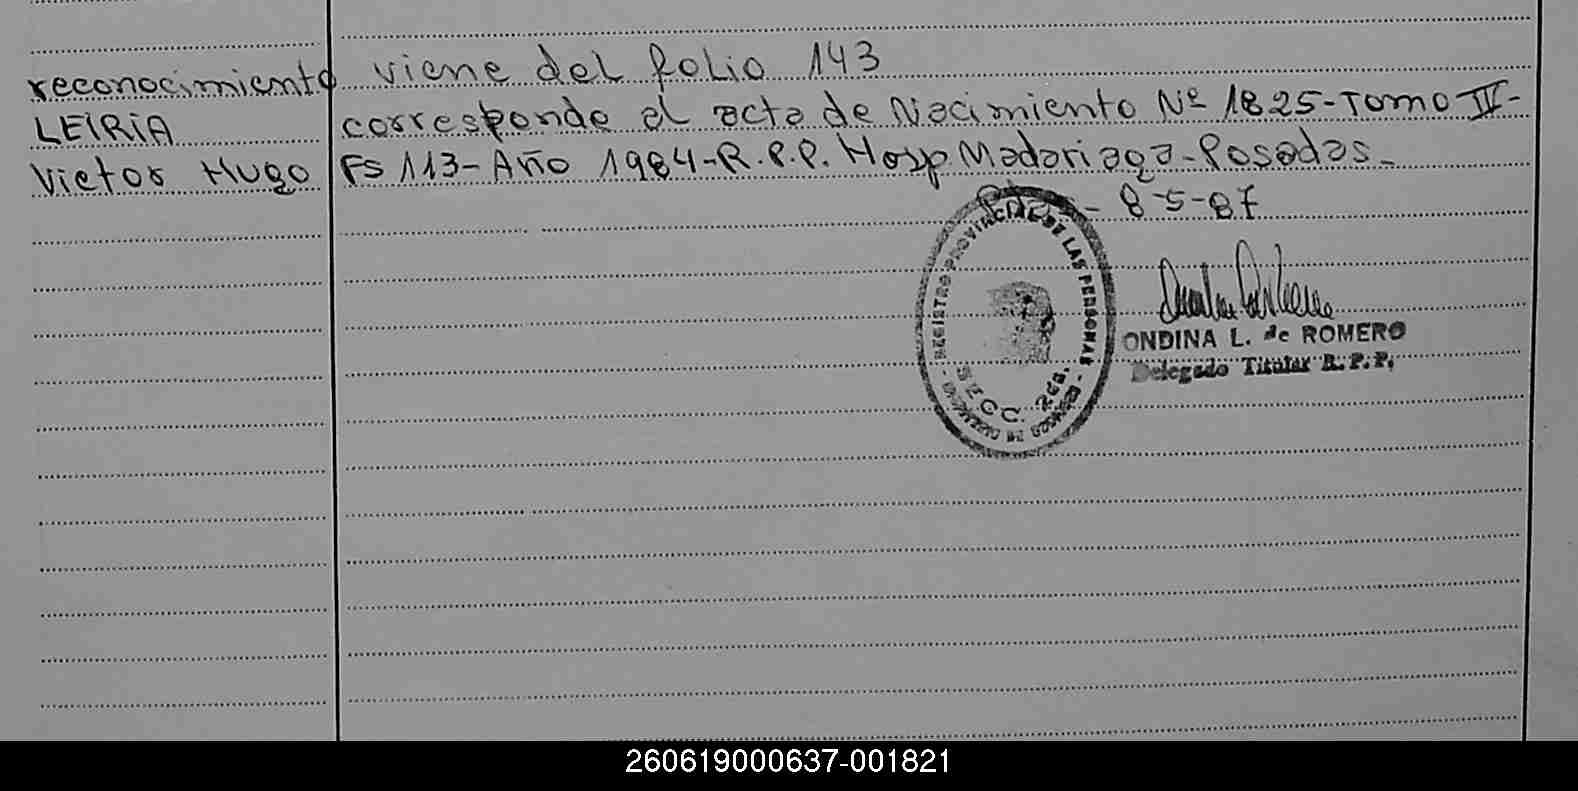 reconocimiento
LEIRIA
Victor Hugo
viene del folio 143
corresponde al acta de Nacimiento Nº 1825-Tomo IV-
Fs 113-Año 1984-R.P.P. Hosp Madariaga-Posadas-
- 8-5-87
REGISTRO PROVINCIAL DE LAS PERSONAS
SECC. 2da.
ONDINA L. de ROMERO
Delegado Titular R.P.P.
260619000637-001821